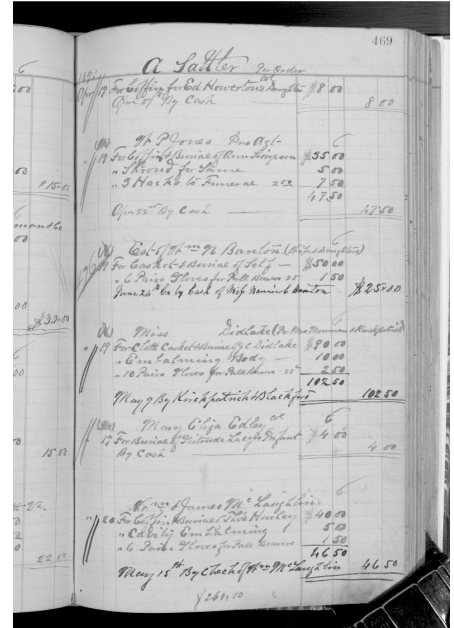 469
A Sadtler Per Order
1891
Apr 19 For Coffin for Ed Howerton's Daughter $8 00
Apr By Cash 8 00
W P Jones
19 For Coffin & Burial of Ann $35 00
" Shroud for Same 5 00
" 3 Hacks to Funeral 250 7 50
47 50
Apr 22 By Cash 47 50
Est of Wm N Banton (Wife & Daughters)
19 For Casket & Burial of Self $50 00
" 6 Pairs Gloves for Pall Bearers 25 1 50
June 24th Cr by Cash of Miss Nannie Banton $25 00
Miss Didlake (Per Mrs & Kirkpatrick)
19 For Cloth Casket & Burial of C Didlake $90 00
" Embalming Body 10 00
" 10 Pairs Gloves for Pall Bearers 25 2 50
102 50
May 9 By Kirkpatrick & Blackford 102 50
Mary Eliza Edley col
19 For Burial of Gertrude Lacy's Infant $4 00
By Cash 4 00
Wm & James McLaughlin
20 For Coffin & Burial of Thos Hurley $40 00
" Cavity Embalming 5 00
" 6 Pairs Gloves for Pall Bearers 1 50
46 50
May 15th By Check of Wm McLaughlin 46 50